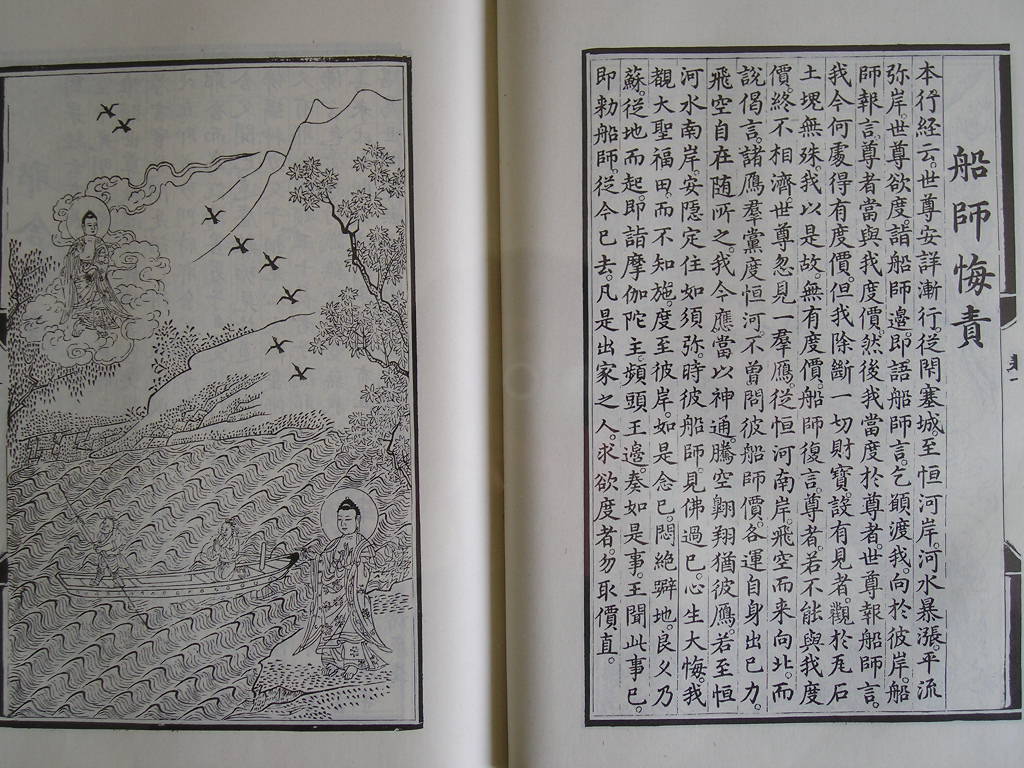 船師悔責
本行経云。世尊安詳漸行。從閈塞城至恒河岸河水暴漲。平流
弥岸。世尊欲度。詣船師邊。即語船師言。乞願渡我。向於彼岸。船
師報言。尊者當與我度價。然後我當度於尊者。世尊報船師言。
我今何處得有度價。但我除斷一切財寶。設有見者。觀於瓦石
土塊無殊。我以是故。無有度價。船師復言。尊者若不能與我度
價。終不相濟。世尊忽見一羣鴈。從恒河南岸。飛空而来向北。而
說偈言。諸鴈羣黨度恒河。不曾問彼船師價。各運自身出己力。
飛空自在随所之。我今應當以神通。騰空翺翔猶彼鴈。若至恒
河水南岸。安隱定住如須弥。時彼船師見佛過已。心生大悔。我
覩大聖福田而不知施。度至彼岸。如是念已。悶絶躃地。良乆乃
蘇。從地而起。即詣摩伽陀主。頻頭王邊。奏如是事。王聞此事已。
即勑船師。從今已去。凡是出家之人。求欲度者。勿取價直。